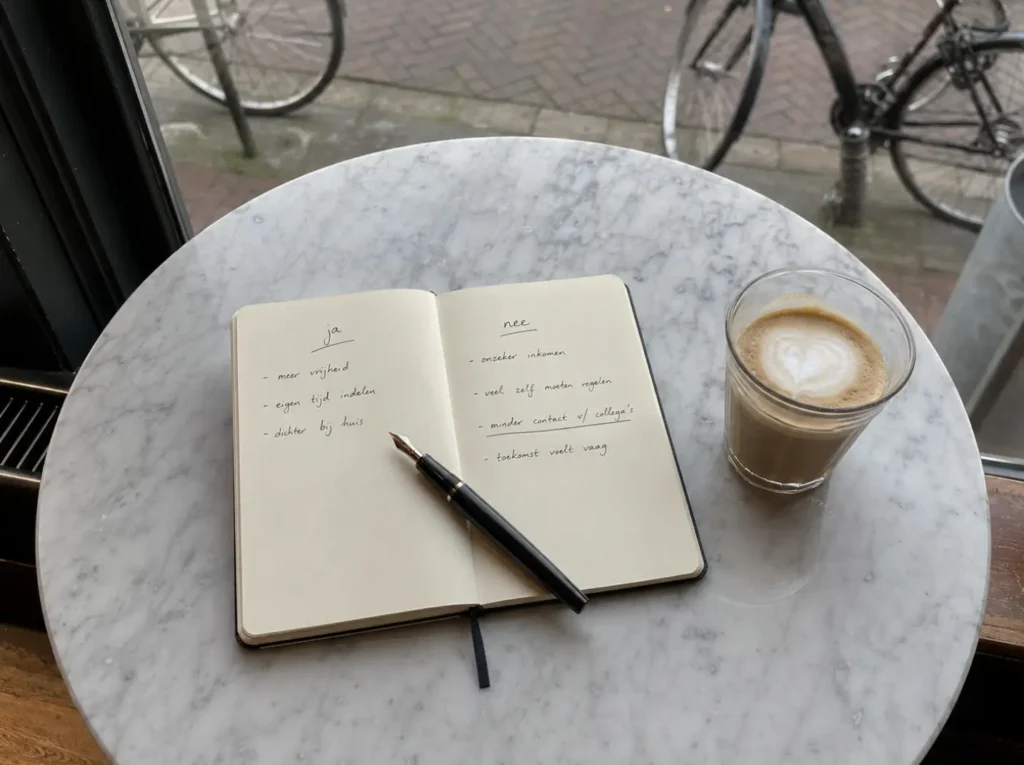 ja
- meer vrijheid
- eigen tijd indelen
- dichter bij huis
nee
- onzeker inkomen
- veel zelf moeten regelen
- minder contact v/ collega's
- toekomst voelt vaag